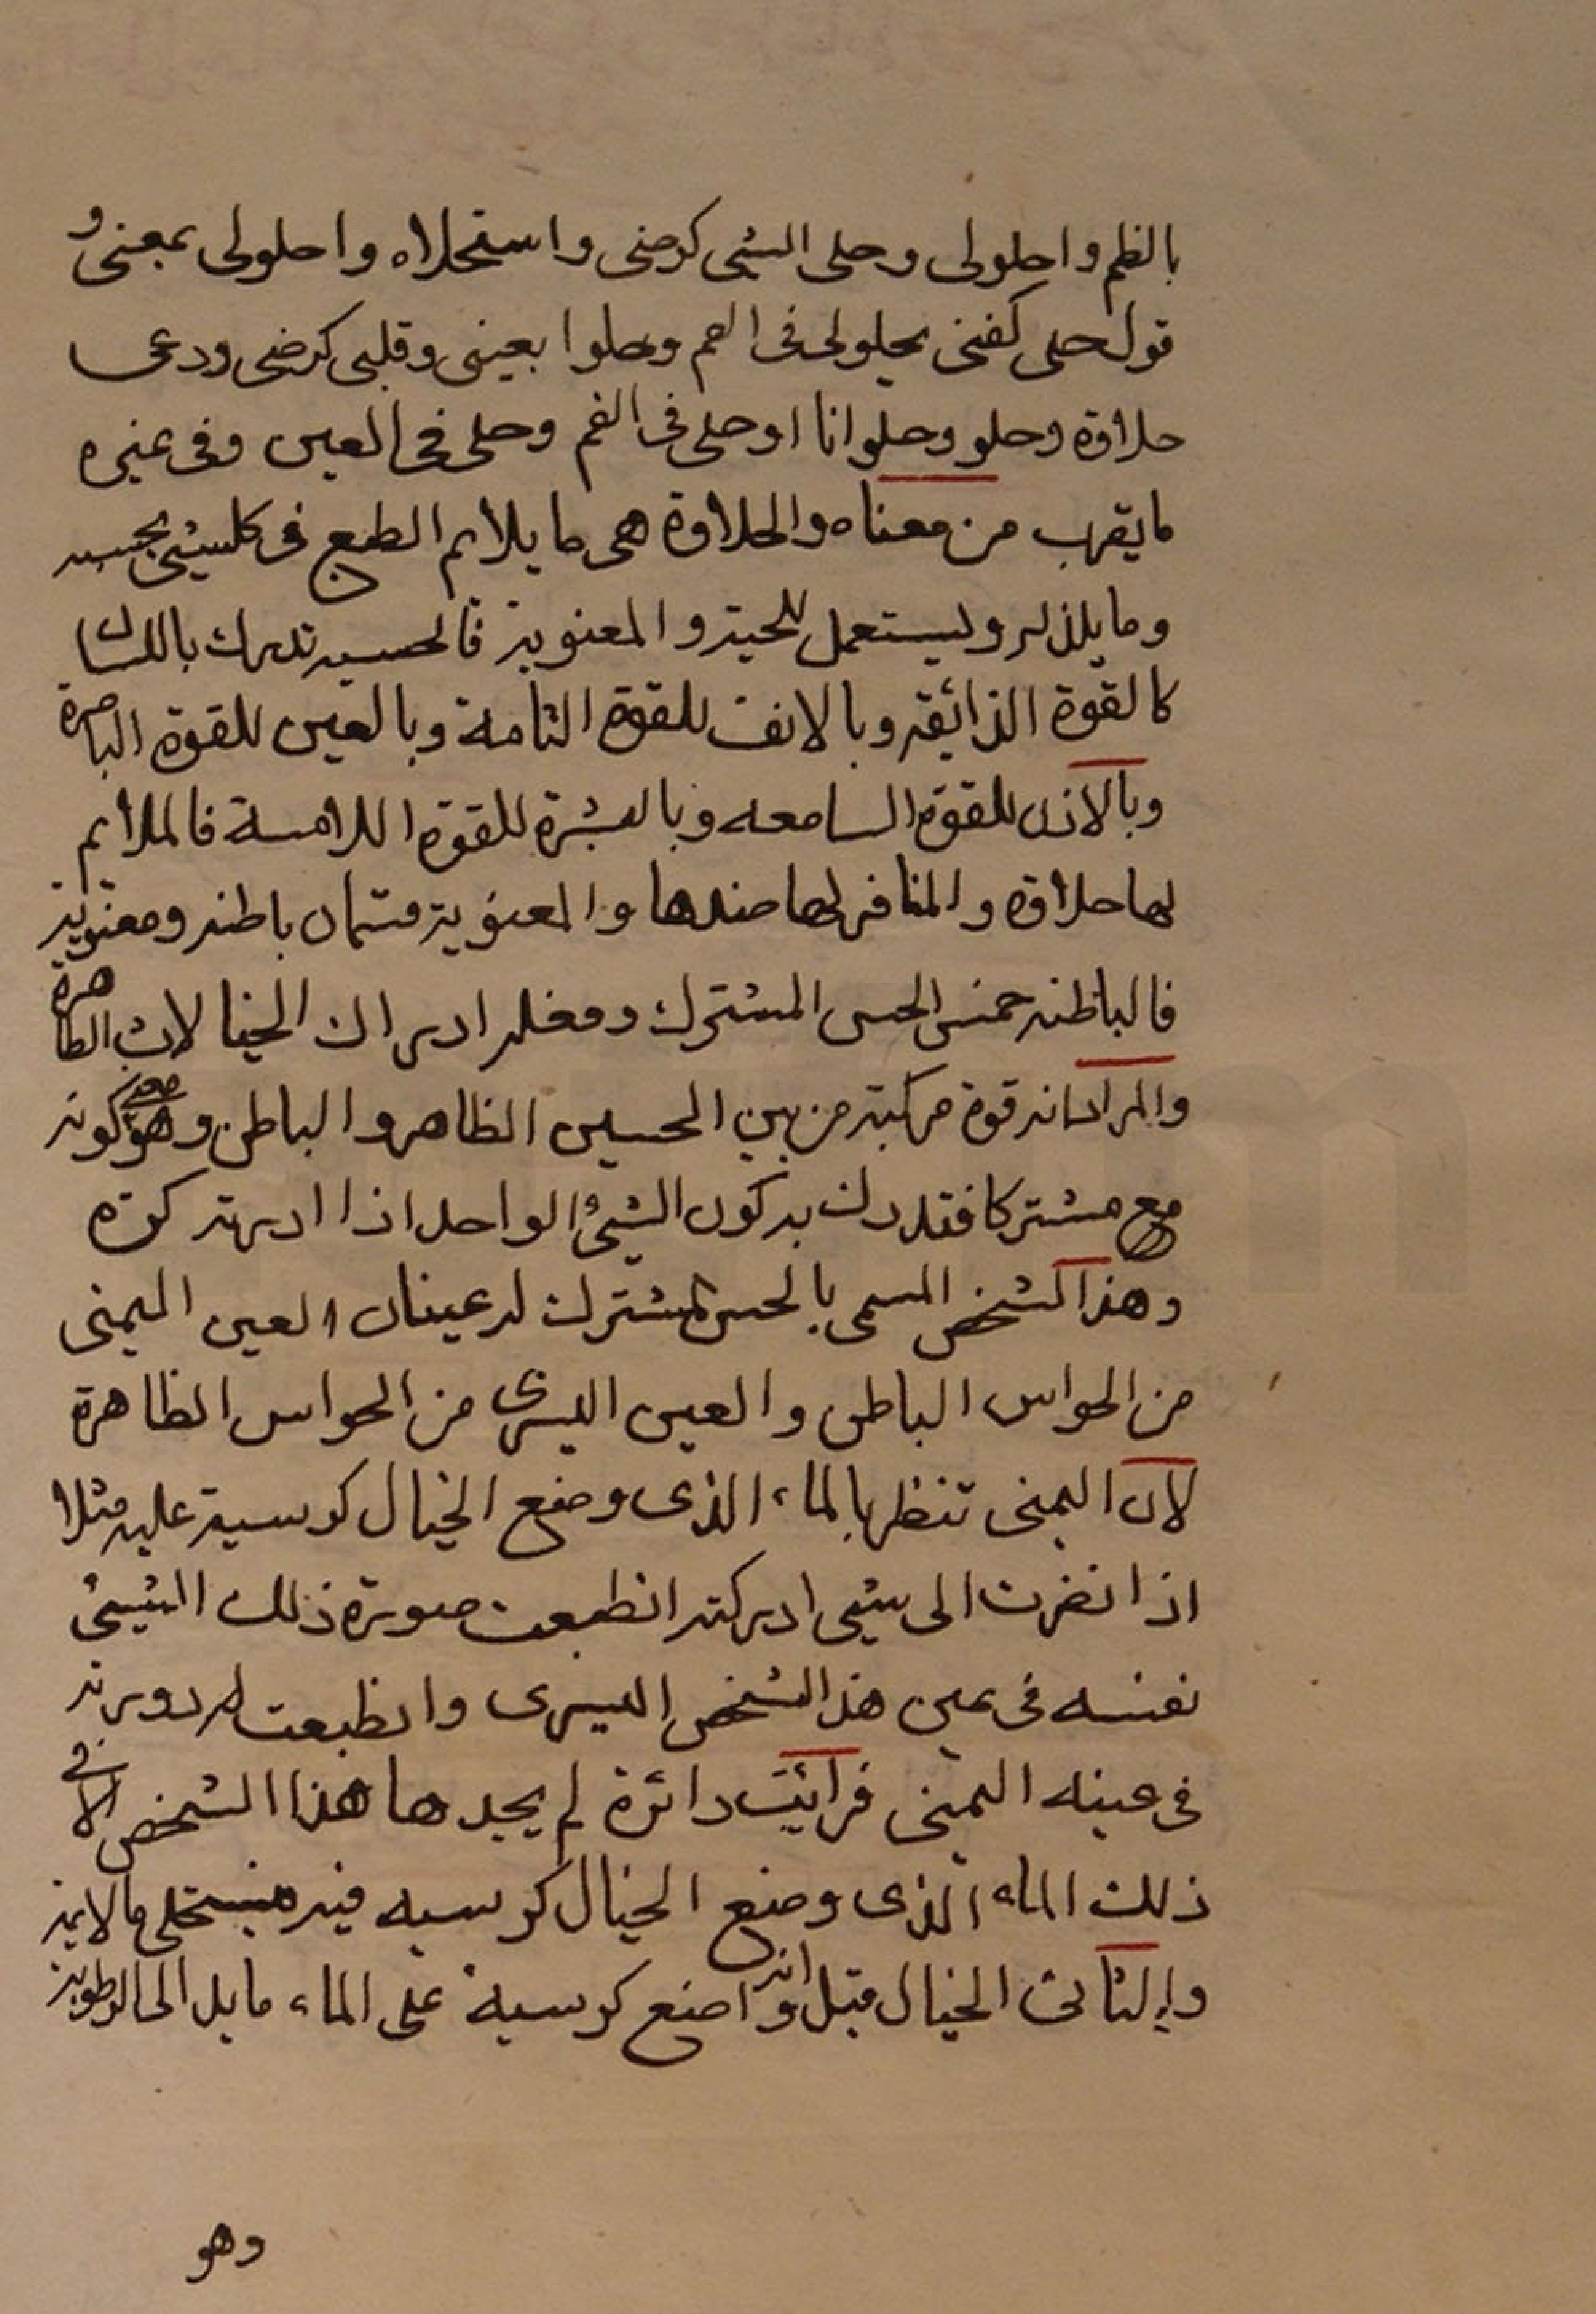 بالظم واحلولى وحلى الشئ كرضى واستحلاه واحلولى بمعنى و
قول حلى كفنى يحلولى فى الفم وحلوا بعينى وقلبى كرضى ودعى
حلاوة وحلو وحلوانا اوحلى فى الفم وحلى فى العين وفى غيره
مايقرب من معناه والحلاوة هى ما يلايم الطبع فى كلشئ بحسبه
وما يلذ له وليستعمل للحية والمعنوية فالحسيه تدرك باللسان
كالقوة الذائقه وبالانف للقوة الشامة وبالعين للقوة الباصرة
وبالاذن للقوة السامعه وبالبشرة للقوة اللامسة فالملايم
لها حلاوه والمنافر لها ضدها والمعنوية قسمان باطنه ومعنوية
فالباطنه خمس الحس المشترك وفعله ادراك الخيالات الظاهرة
والمراد انه قوة مركبة من بين الحسين الظاهر والباطن وهو كونه
مع مشتركا فتدرك به كون الشئ الواحد اذا ادرته كرة
وهذا الشخص المسمى بالحس المشترك له عينان العين اليمنى
من الحواس الباطن والعين اليسرى من الحواس الظاهرة
لان اليمنى تنظر بالماء الذى وضع الخيال كرسية عليه مثلا
اذا نضرت الى شئ ادركته انطبعت صورة ذلك الشئ
نفسه فى عين هذا الشخص اليسرى وانطبعت له دورته
فى عينه اليمنى فرائيت دائرة لم يجدها هذا الشخص الا فى
ذلك الماء الذى وضع الخيال كرسيه فيه
والثانى الخيال قيل انه وضع كرسية على الماء مايل الى الرطوبة
وهو